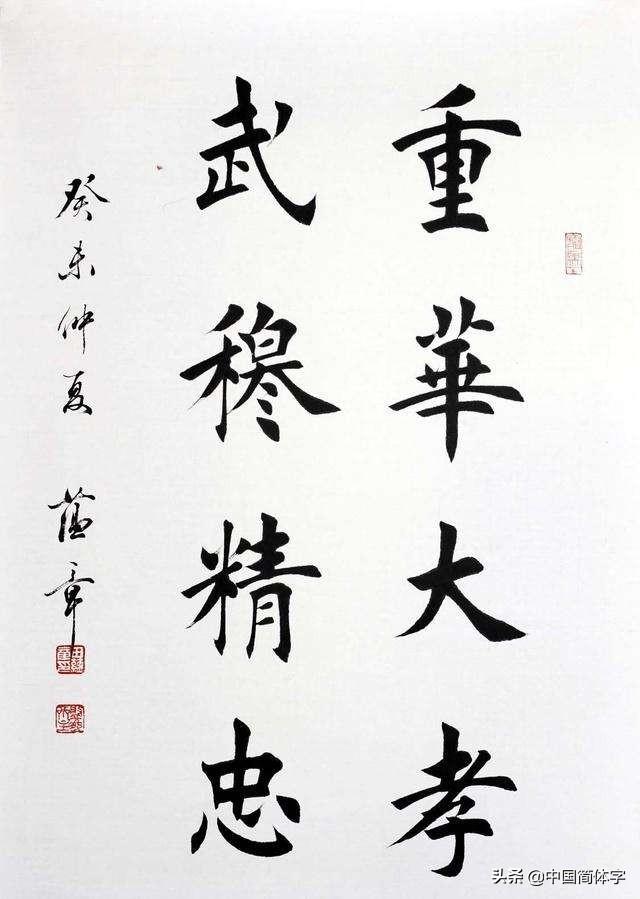 重華大孝
武穆精忠
癸未仲夏 蘊章
头条 @中国简体字